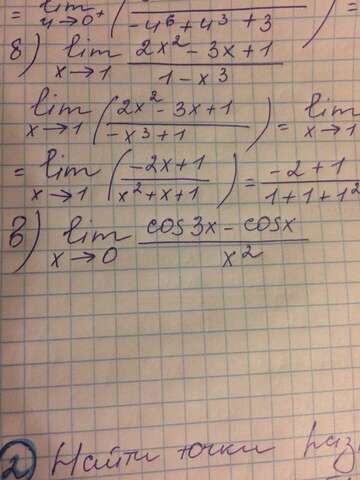 = lim u→0⁺ ( / (-4⁶ + 4³ + 3) ) =
б) lim x→1 (2x² - 3x + 1) / (1 - x³)
lim x→1 ( (2x² - 3x + 1) / (-x³ + 1) ) = lim x→1
= lim x→1 ( (-2x + 1) / (x² + x + 1) ) = (-2 + 1) / (1 + 1 + 1²)
в) lim x→0 (cos3x - cosx) / x²
2) Найти точки раз